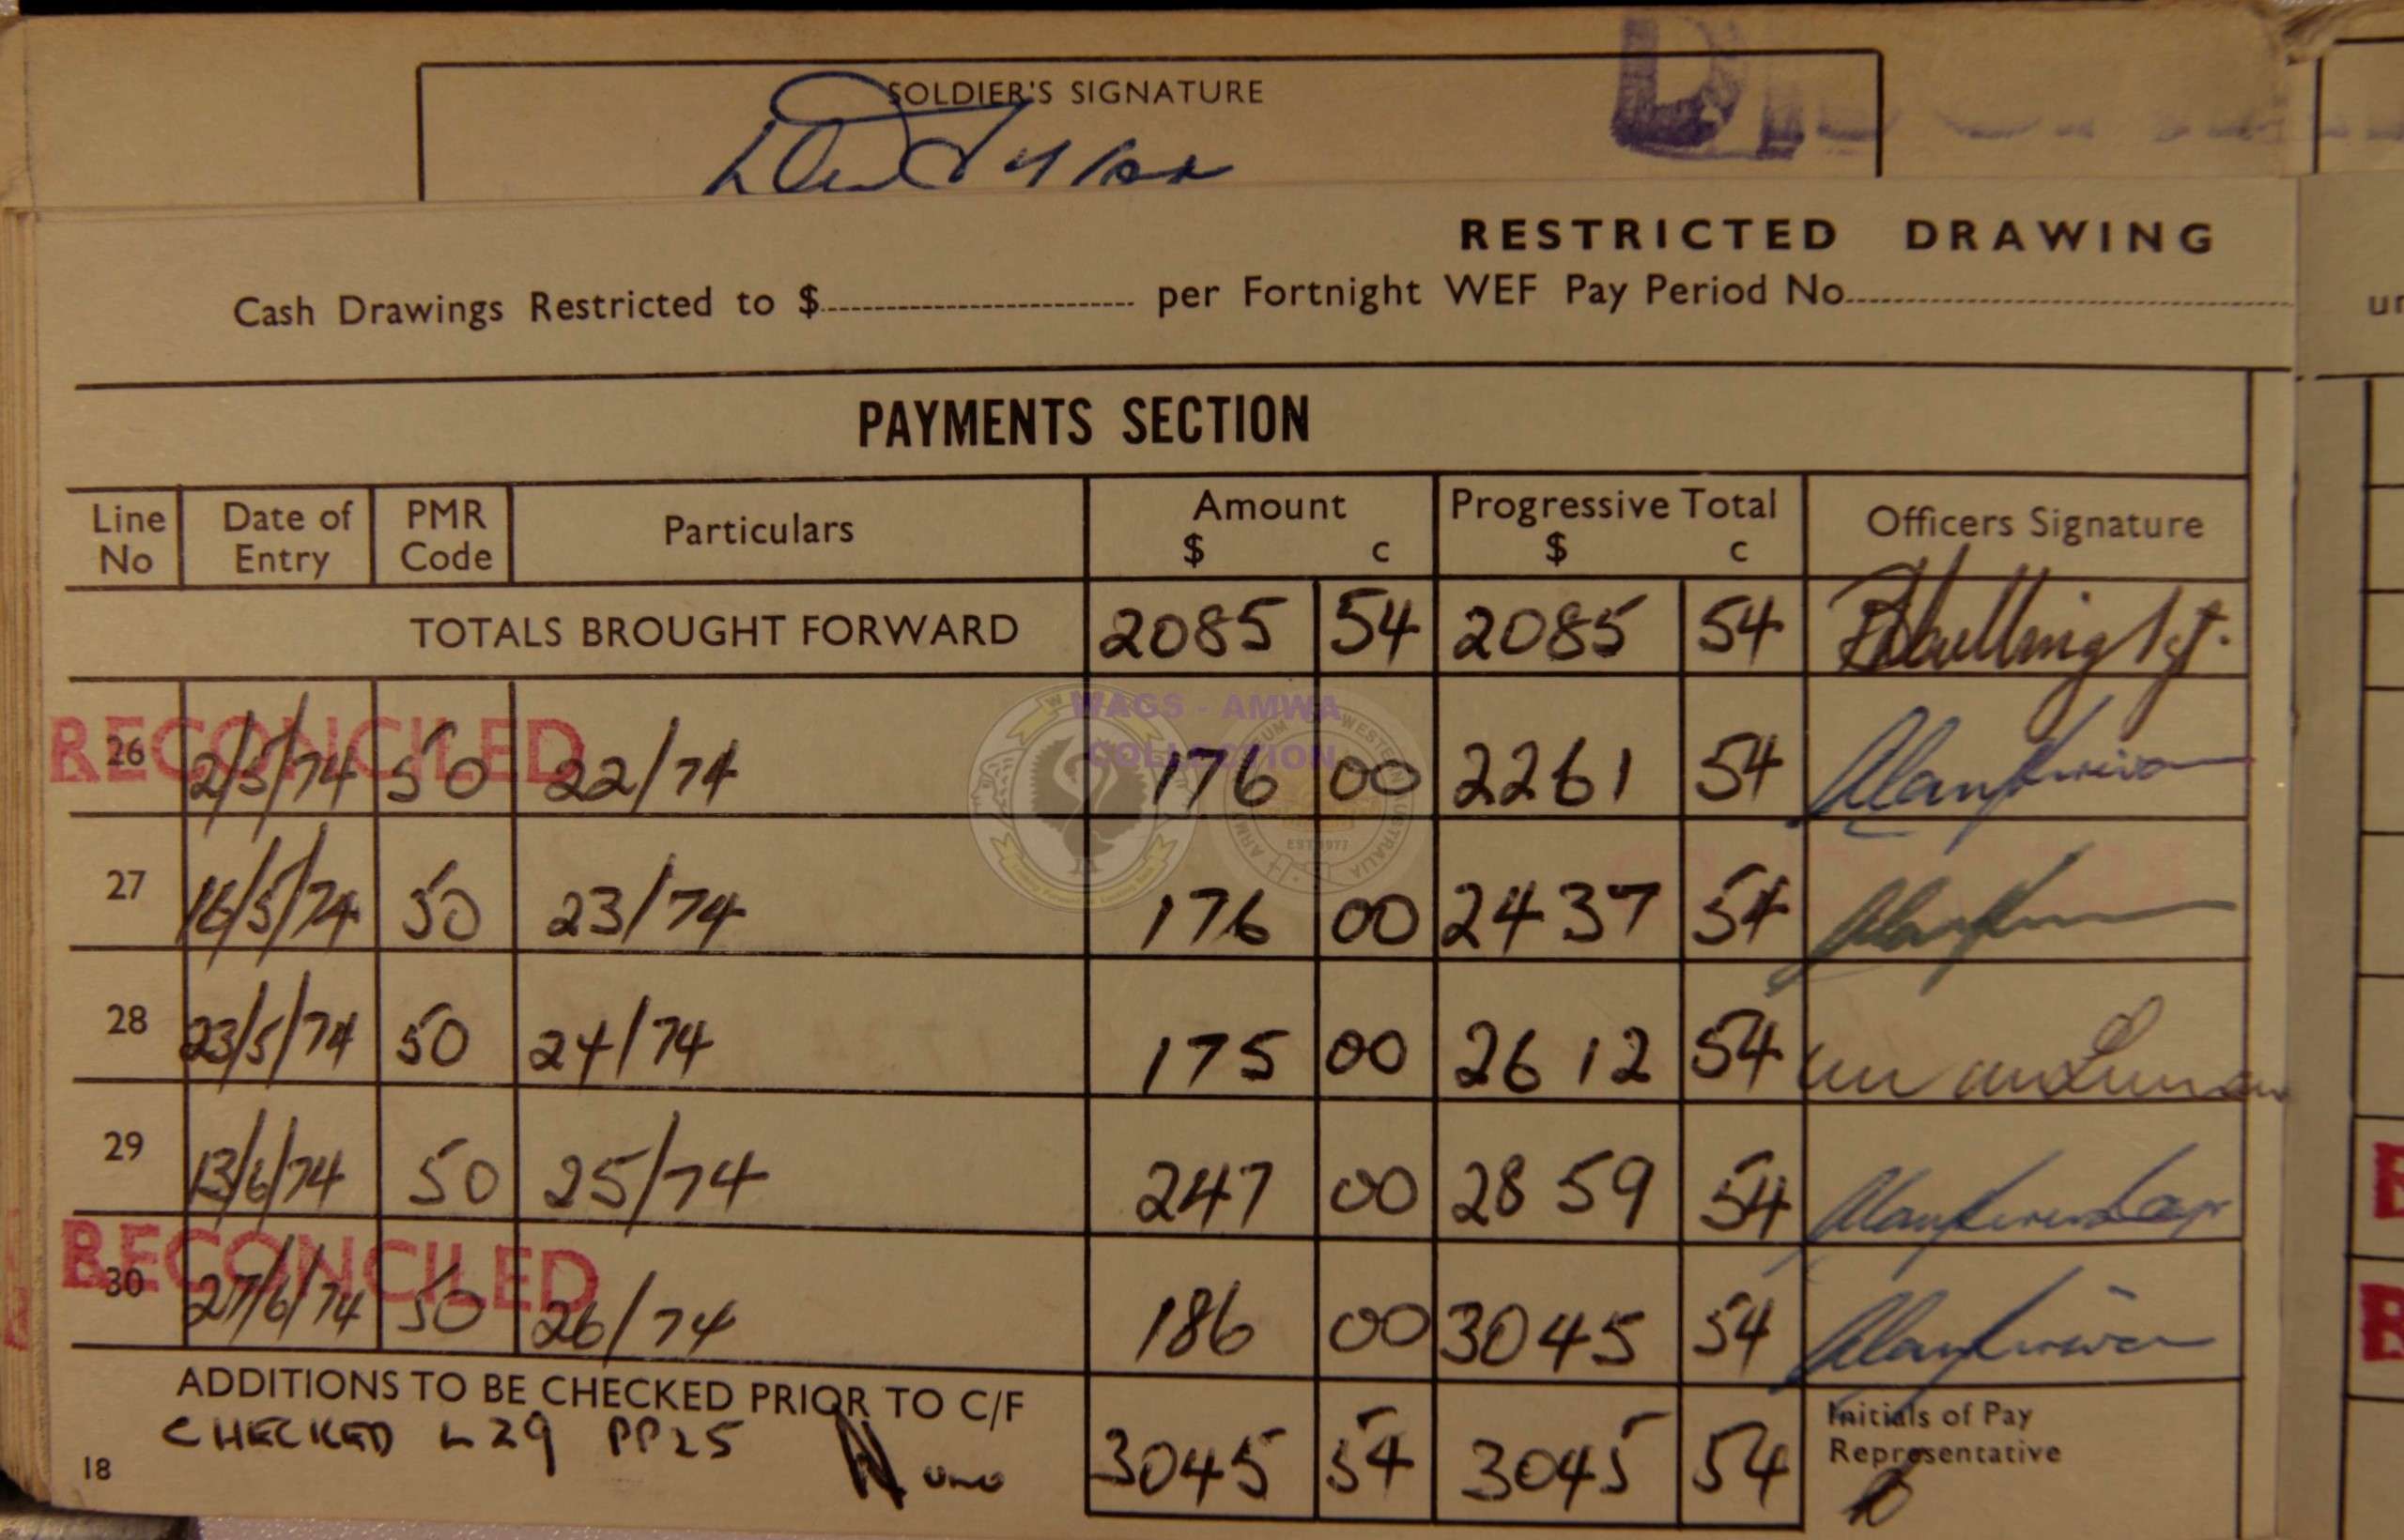 SOLDIER'S SIGNATURE
RESTRICTED DRAWING
Cash Drawings Restricted to $ per Fortnight WEF Pay Period No
PAYMENTS SECTION
Line No Date of Entry PMR Code Particulars Amount $ c Progressive Total $ c Officers Signature
TOTALS BROUGHT FORWARD 2085 54 2085 54
WAGS - AMWA
COLLECTION
RECONCILED
26 2/5/74 50 22/74 176 00 2261 54
EST 1977
27 16/5/74 50 23/74 176 00 2437 54
28 23/5/74 50 24/74 175 00 2612 54
29 13/6/74 50 25/74 247 00 2859 54
RECONCILED
30 27/6/74 50 26/74 186 00 3045 54
ADDITIONS TO BE CHECKED PRIOR TO C/F 3045 54 3045 54 Initials of Pay Representative
CHECKED L29 PP25
18